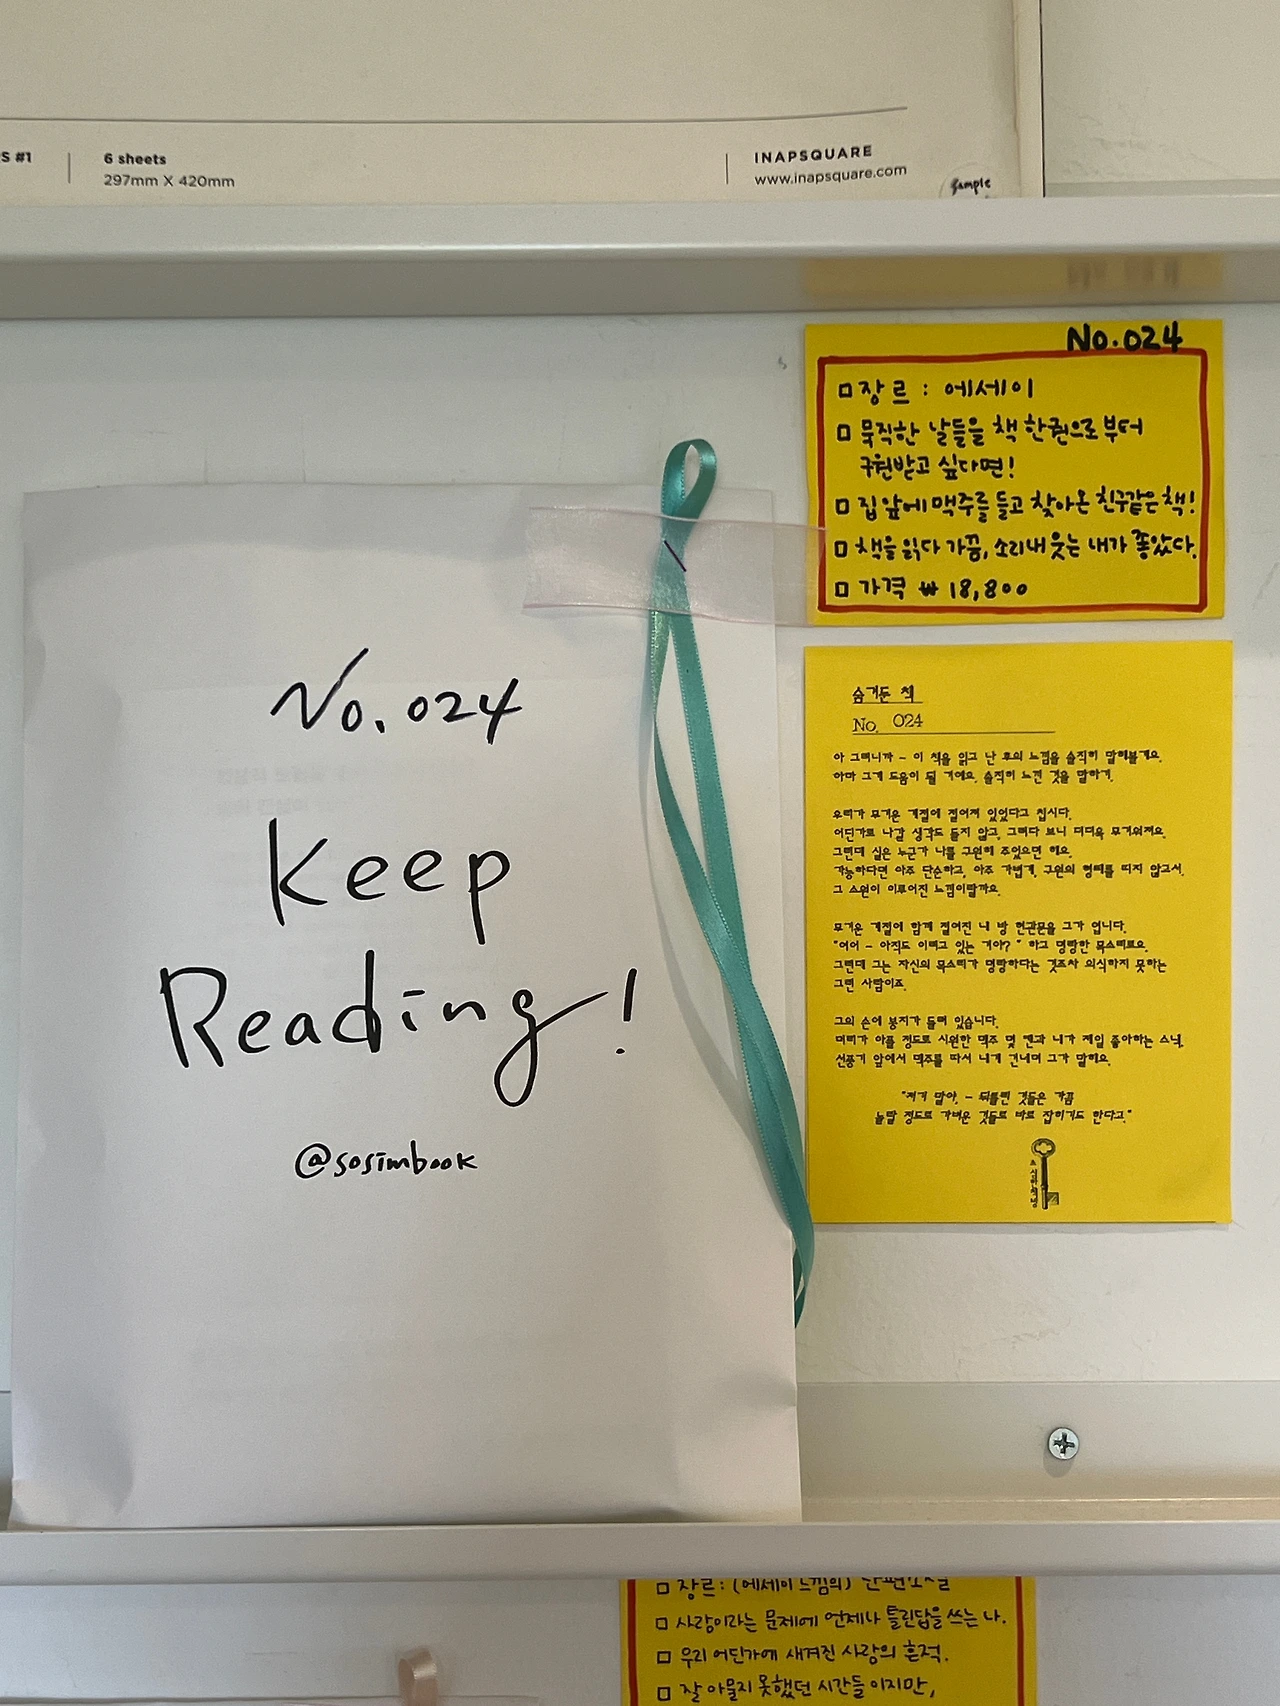 S #1
6 sheets
297mm X 420mm
INAPSQUARE
www.inapsquare.com
sample
No.024
Keep
Reading!
@sosimbook
No.024
□ 장르 : 에세이
□ 묵직한 날들을 책 한권으로부터
구원받고 싶다면!
□ 집앞에 맥주를 들고 찾아온 친구같은 책!
□ 책을 읽다 가끔, 소리내 웃는 내가 좋았다.
□ 가격 ₩ 18,800
숨겨둔 책
No. 024
아 그러니까 - 이 책을 읽고 난 후의 느낌을 솔직히 말해볼게요.
아마 그게 도움이 될 거예요. 솔직히 느낀 것을 말하기.
우리가 무거운 계절에 접어져 있었다고 칩시다.
어딘가로 나갈 생각도 들지 않고, 그러다 보니 더더욱 무거워져요.
그런데 실은 누군가 나를 구원해 주었으면 해요.
가능하다면 아주 단순하고, 아주 가볍게, 구원의 형태를 띠지 않고서.
그 소원이 이루어진 느낌이랄까요.
무거운 계절에 함께 접어진 내 방 현관문을 그가 엽니다.
"어어 - 아직도 이러고 있는 거야?" 하고 명랑한 목소리로요.
그런데 그는 자신의 목소리가 명랑하다는 것조차 의식하지 못하는
그런 사람이죠.
그의 손에 봉지가 들려 있습니다.
머리가 아플 정도로 시원한 맥주 몇 캔과 내가 제일 좋아하는 스낵.
선풍기 앞에서 맥주를 따서 내게 건네며 그가 말해요.
"저기 말야, - 뒤틀린 것들은 가끔
놀랄 정도로 가벼운 것들로 바로 잡히기도 한다고."
□ 장르 : (에세이 느낌의) 단편소설
□ 사랑이라는 문제에 언제나 틀린답을 쓰는 나.
□ 우리 어딘가에 새겨진 사랑의 흔적.
□ 잘 아물지 못했던 시간들이지만,